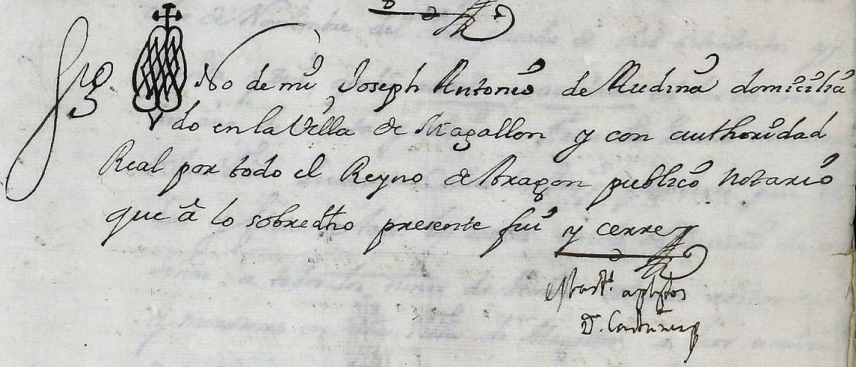 Sig No de mi Joseph Antonio de Medina domicilia
do en la Villa de Magallon y con authoridad
Real por todo el Reyno de Aragon publico Notario
que â lo sobredho presente fui y cerre